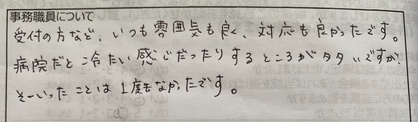 事務職員について
受付の方など、いつも雰囲気も良く、対応も良かったです。
病院だと冷たい感じだったりするところがタタいですが、
そーいったことは1度もなかったです。